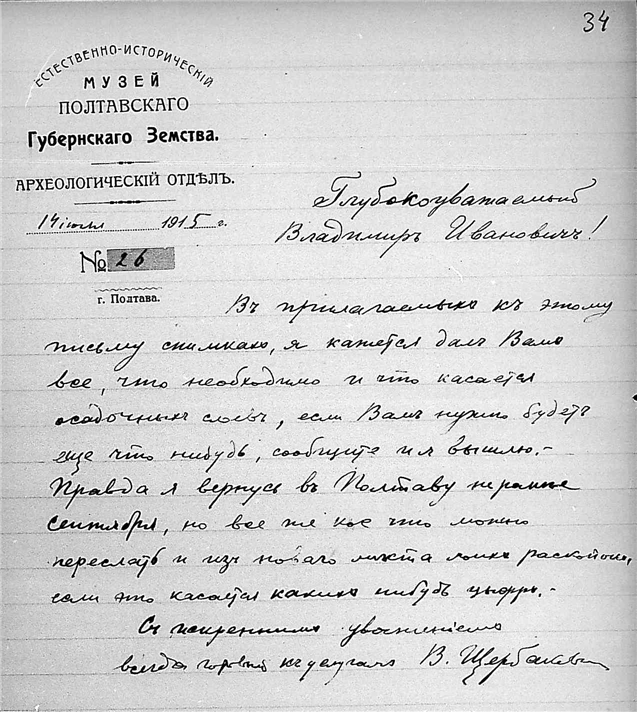 34
ЕСТЕСТВЕННО-ИСТОРИЧЕСКІЙ
МУЗЕЙ
ПОЛТАВСКАГО
Губернскаго Земства.
АРХЕОЛОГИЧЕСКІЙ ОТДѢЛЪ.
14 1915 г.
№ 26
г. Полтава.
Глубокоуважаемый
Владимиръ Ивановичъ!
Въ прилагаемыхъ къ этому
письму снимкахъ, я кажется далъ Вамъ
все, что необходимо и что касается
осадочныхъ слоевъ, если Вамъ нужно будетъ
еще что нибудь, сообщите и я вышлю.-
Правда я вернусь въ Полтаву не ранее
сентября, но все же кое что можно
переслать и изъ новаго места моихъ раскопокъ,
если это касается какихъ нибудь цыфръ.-
Съ искреннимъ уваженіемъ
всегда готовый къ услугамъ В. Щербаковъ